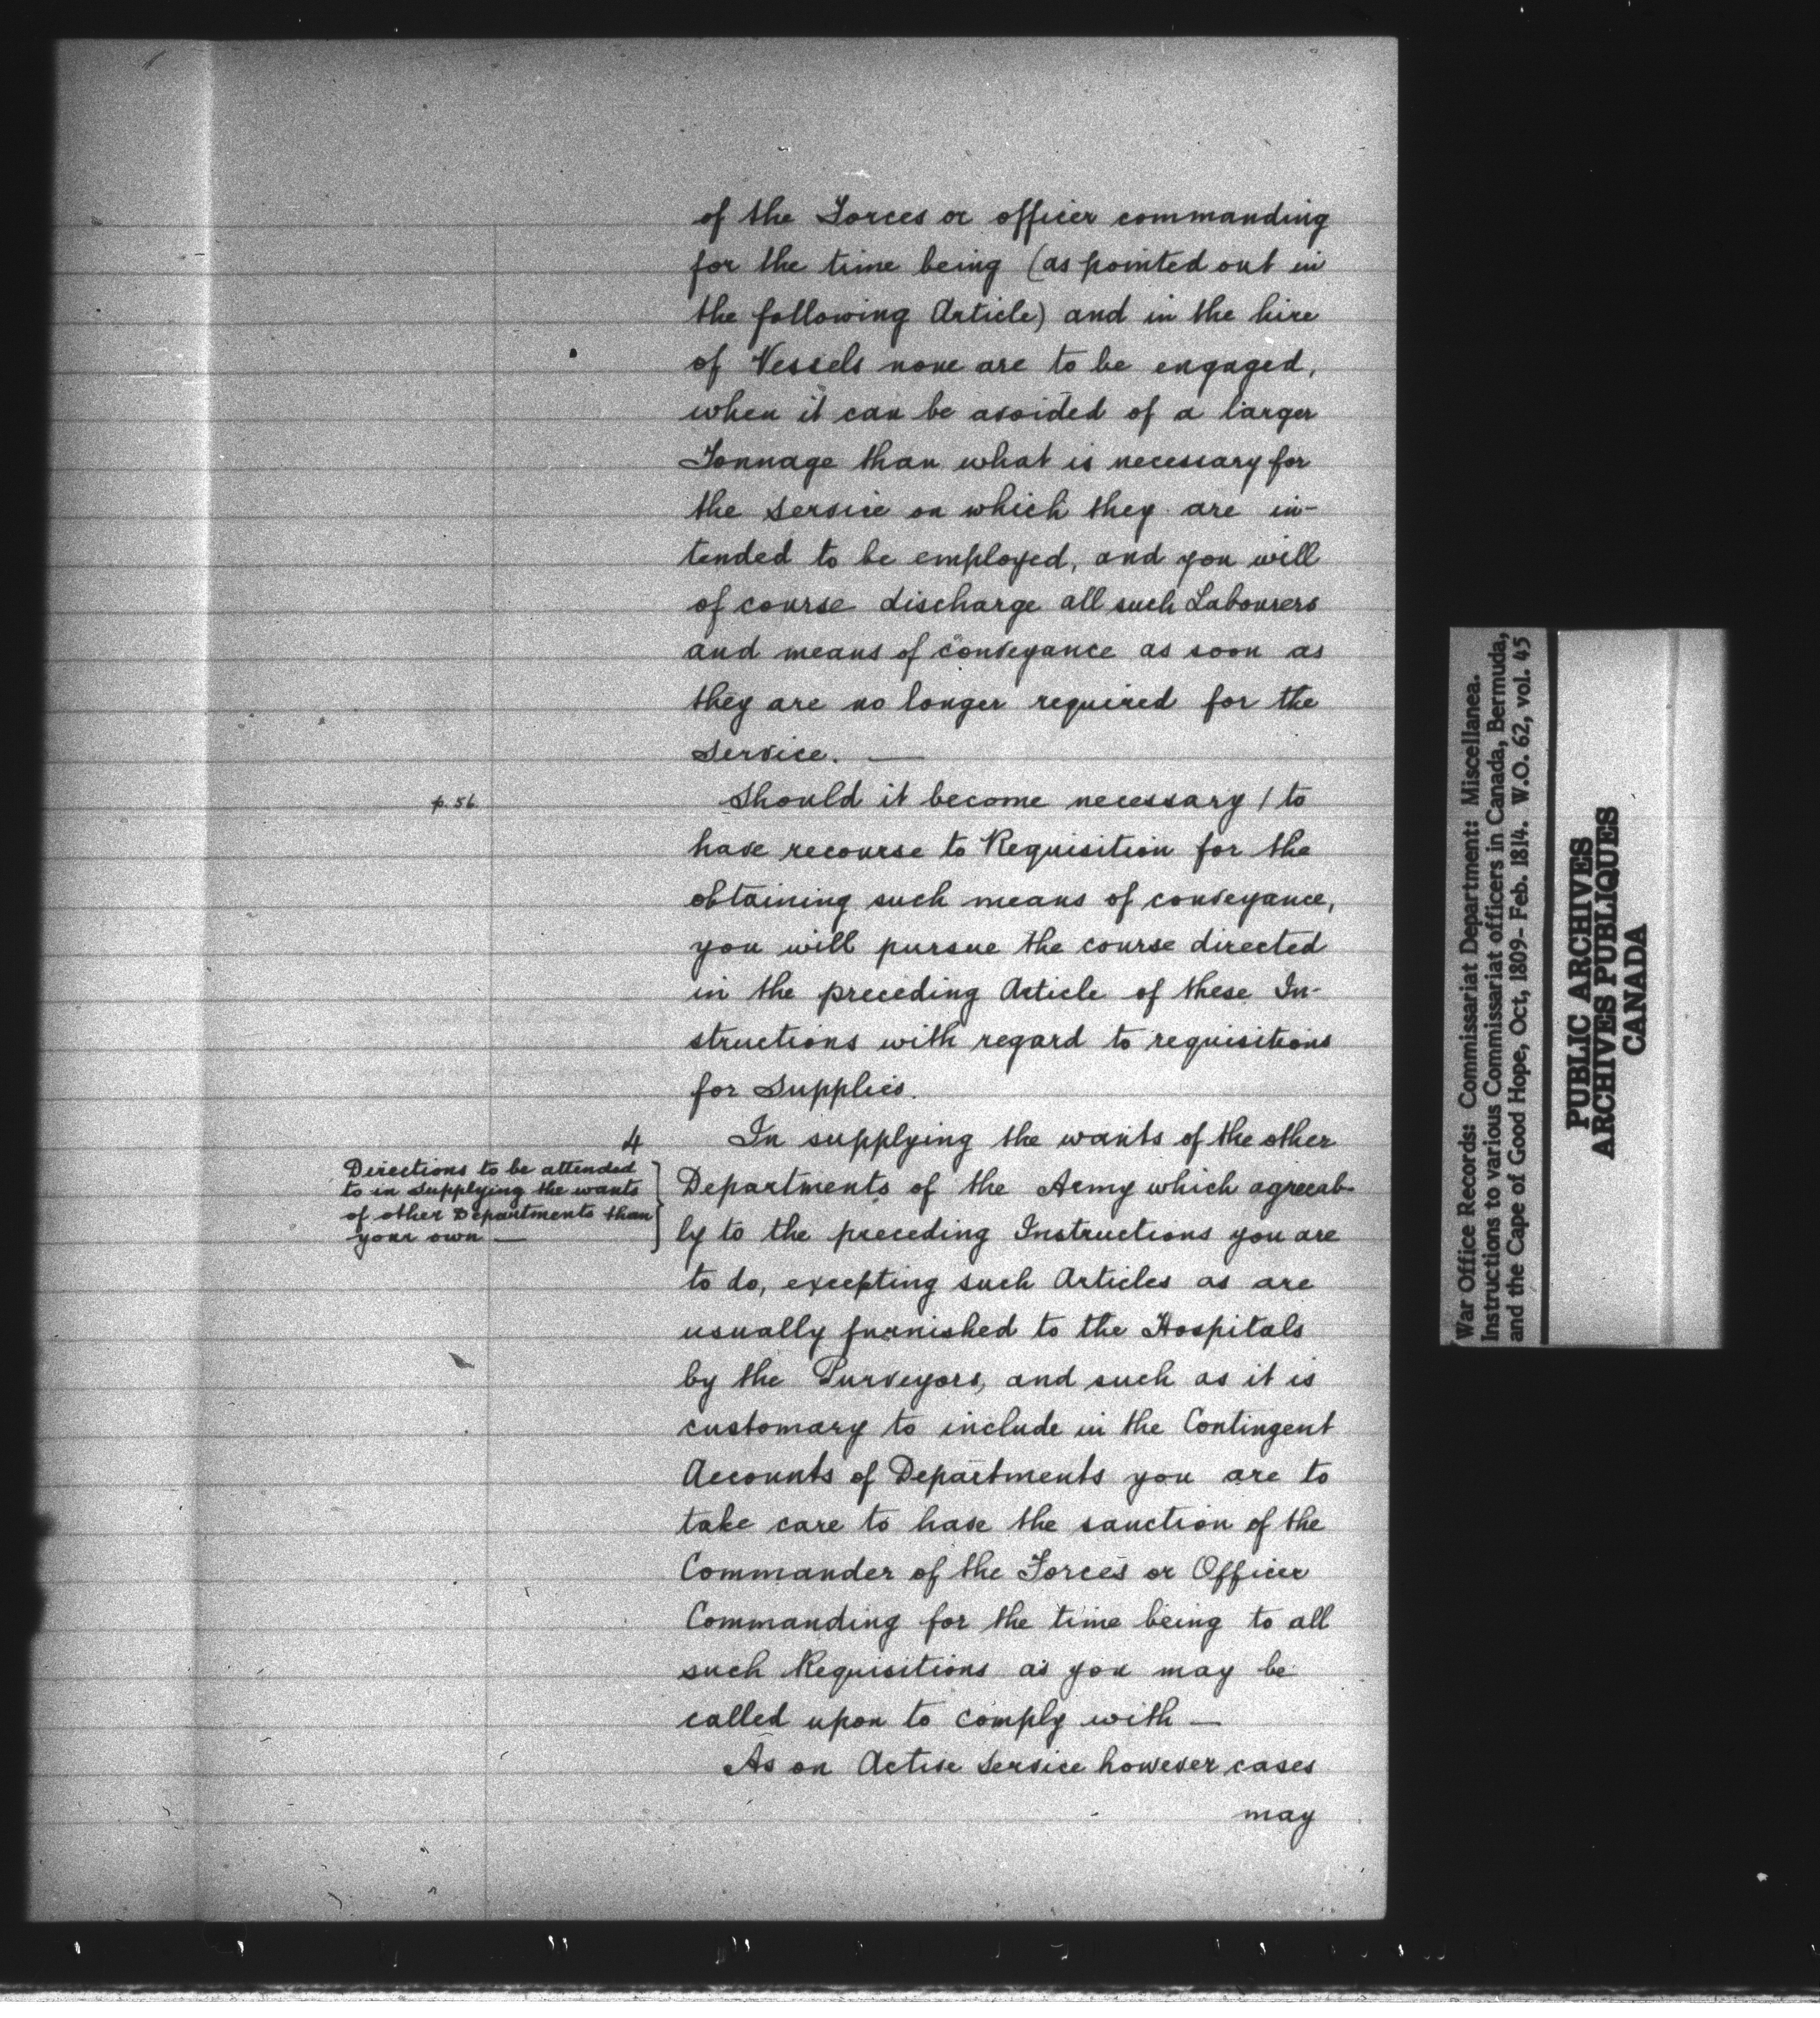 of the Forces or officer commanding
for the time being (as pointed out in
the following Article) and in the hire
of Vessels none are to be engaged,
when it can be avoided of a larger
Tonnage than what is necessary for
the Service on which they are in-
tended to be employed, and you will
of course discharge all such Labourers
and means of conveyance as soon as
they are no longer required for the
Service. —
p. 56
Should it become necessary / to
have recourse to Requisition for the
obtaining such means of conveyance,
you will pursue the course directed
in the preceding Article of these In-
structions with regard to requisitions
for Supplies.
4
Directions to be attended
to in supplying the wants
of other Departments than
your own —
In supplying the wants of the other
Departments of the Army which agreeab-
ly to the preceding Instructions you are
to do, excepting such Articles as are
usually furnished to the Hospitals
by the Purveyors, and such as it is
customary to include in the Contingent
Accounts of Departments you are to
take care to have the sanction of the
Commander of the Forces or Officer
Commanding for the time being to all
such Requisitions as you may be
called upon to comply with —
As on Active Service however cases
may
War Office Records: Commissariat Department: Miscellanea.
Instructions to various Commissariat officers in Canada, Bermuda,
and the Cape of Good Hope, Oct, 1809- Feb. 1814. W.O. 62, vol. 45
PUBLIC ARCHIVES
ARCHIVES PUBLIQUES
CANADA